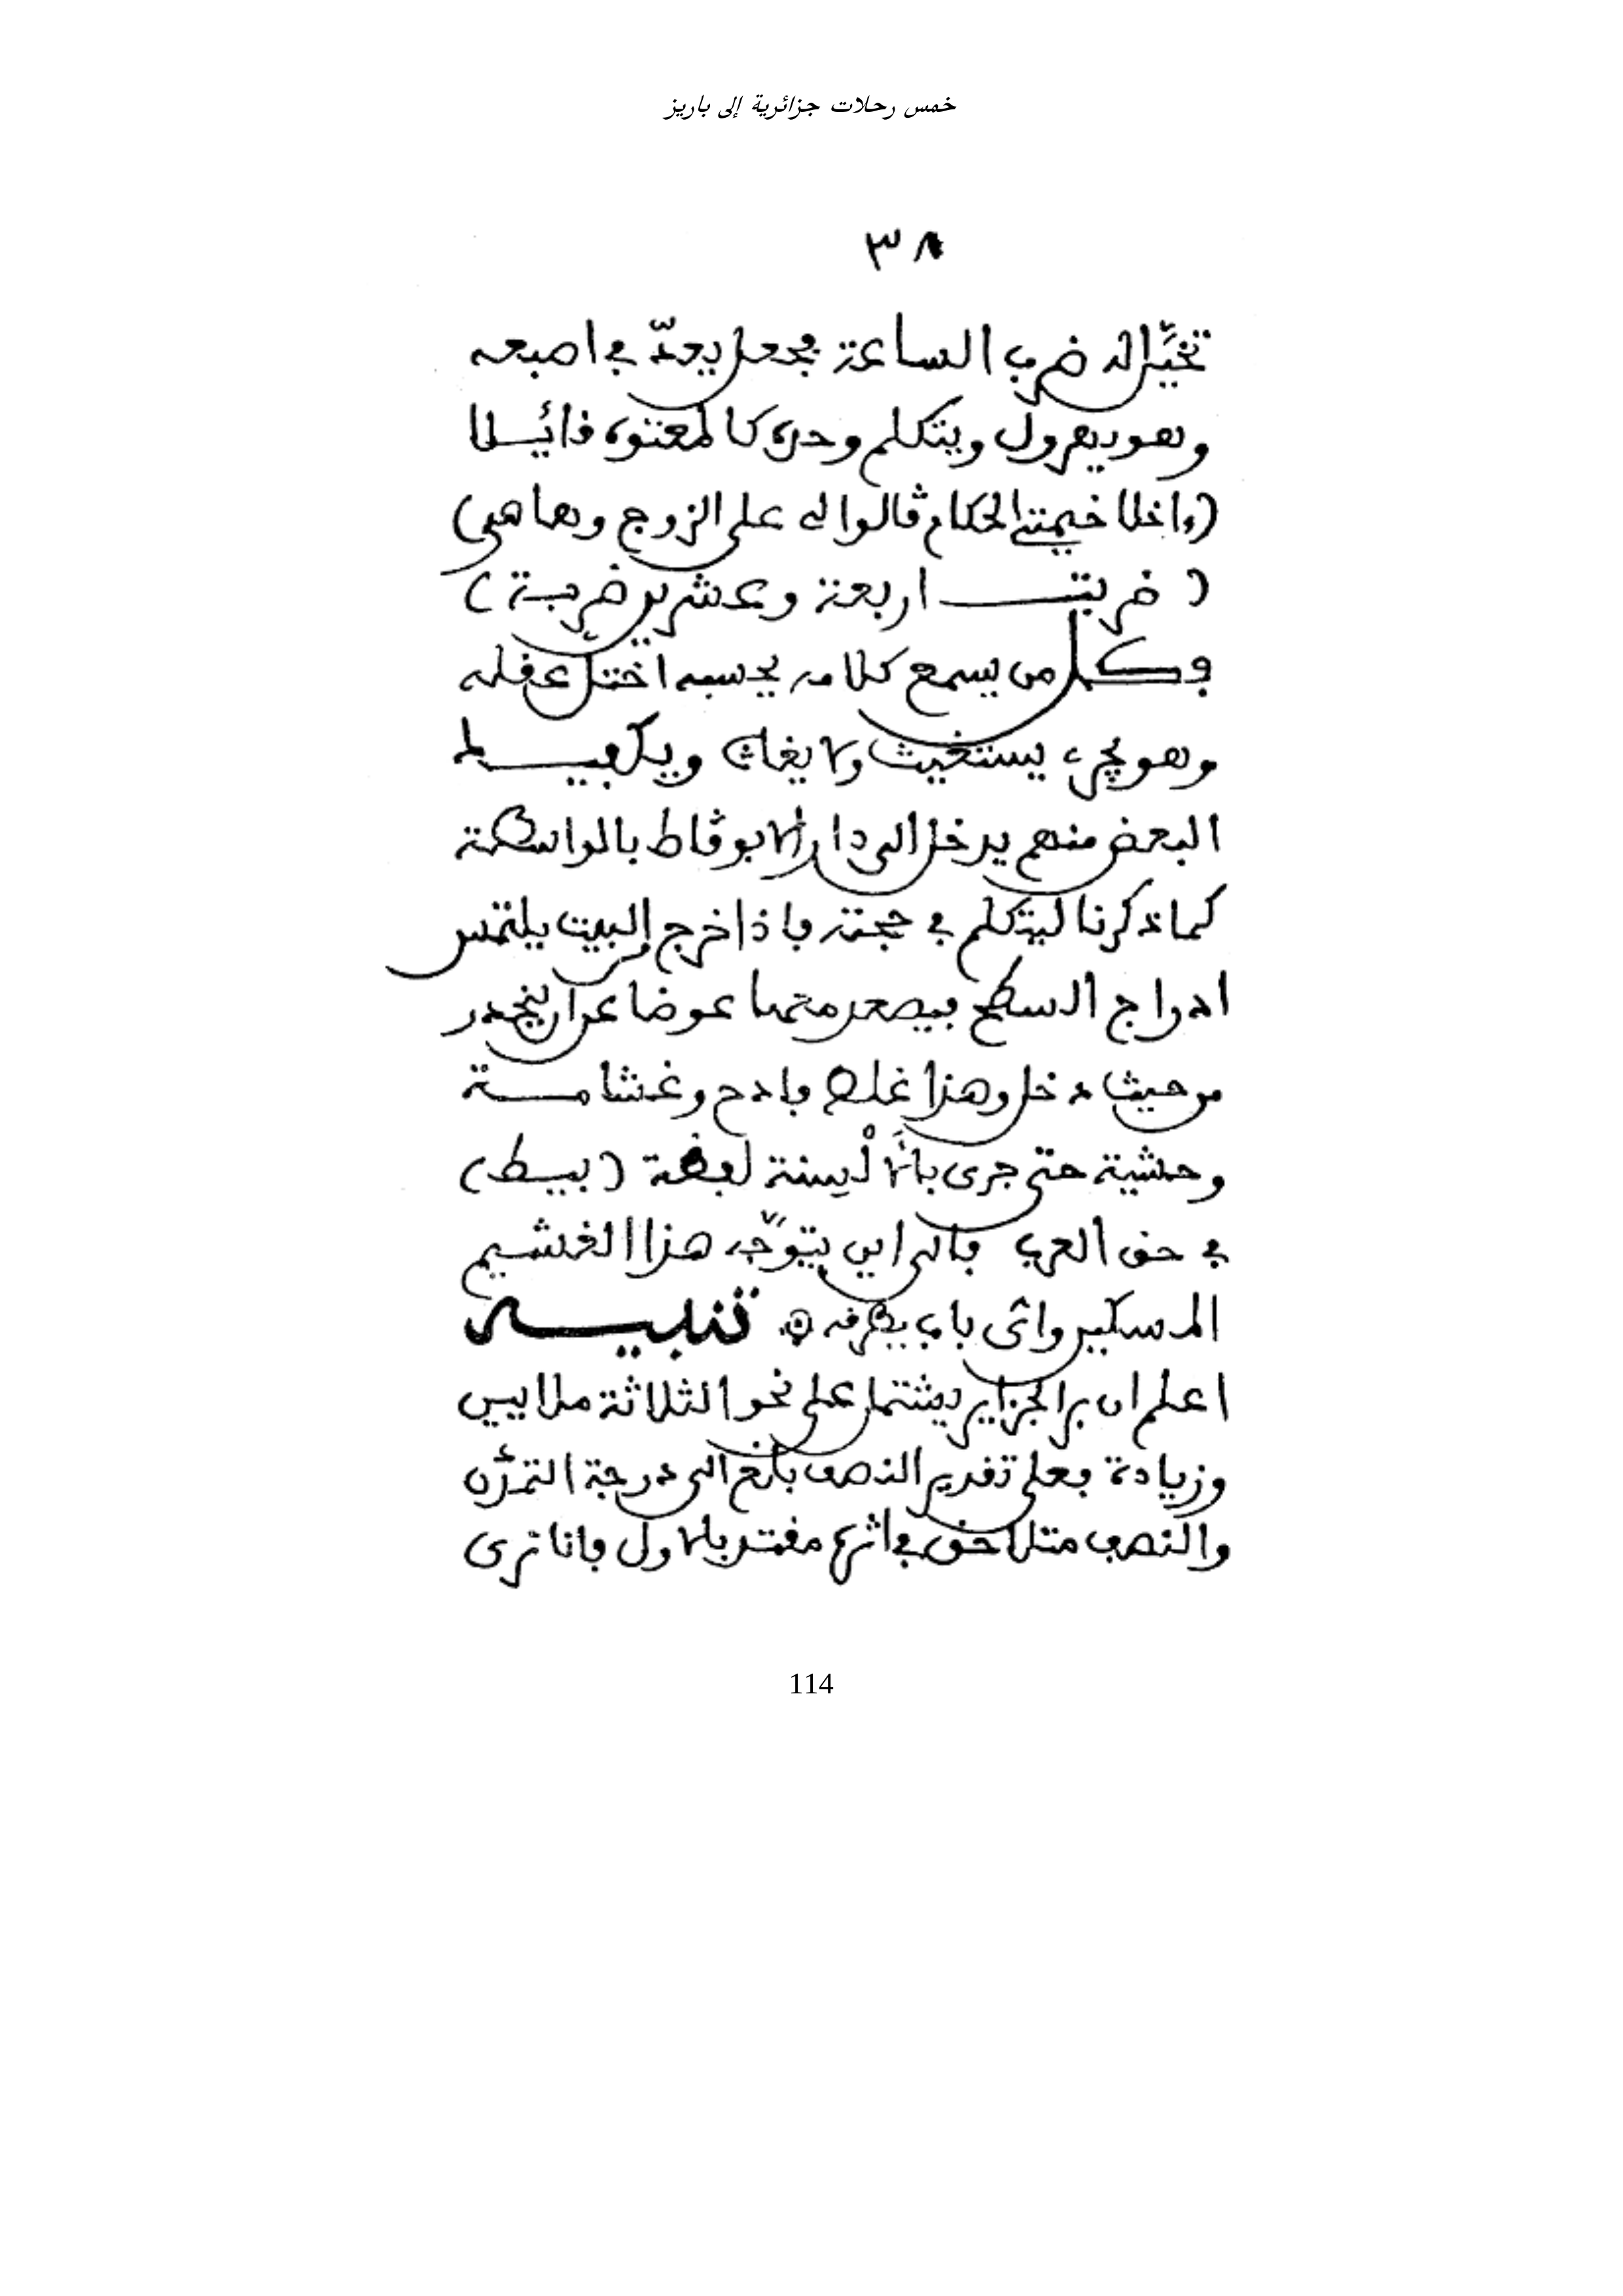 خمس رحلات جزائرية إلى باريز
٣٨
تخيَّل له ضرب الساعة فجعل يعدّ في اصبعه
وهو يهرول ويتكلم وحده كالمعتوه قائـلا
(واخلا خيمتي الحكام قالوا لي على الزوج وها هي)
( ضربتـــ اربعة وعشرين ضربة )
فكل من يسمع كلامه يحسبه اختلّ عقله
وهو يجري يستغيث ولا يغاث ويكفيـــك
البعض منهم يدخل الى دار الابوڤاط بالواسطة
كما ذكرنا ليتكلم في حجته فاذا خرج من البيت يلتمس
ادراج السطح فيصعد متمما عوضا عن ان ينحدر
من حيث دخل وهذا غلط فادح وغشامـــة
وحشية حتى جرى بالأَلْسِنة لفظة (بيسط)
في حق العرب فالى اين يتوجّه هذا الغشيم
المسكين واى باب يطرقه ۞ تنبيـــه
اعلم ان بر الجزاير يشتمل على نحو الثلاثة ملايين
وزيادة فعلى تقدير النصف بلغ الى درجة التمدّن
والنصف متلاحق في اثره مقتد بالاول فانا نرى
114